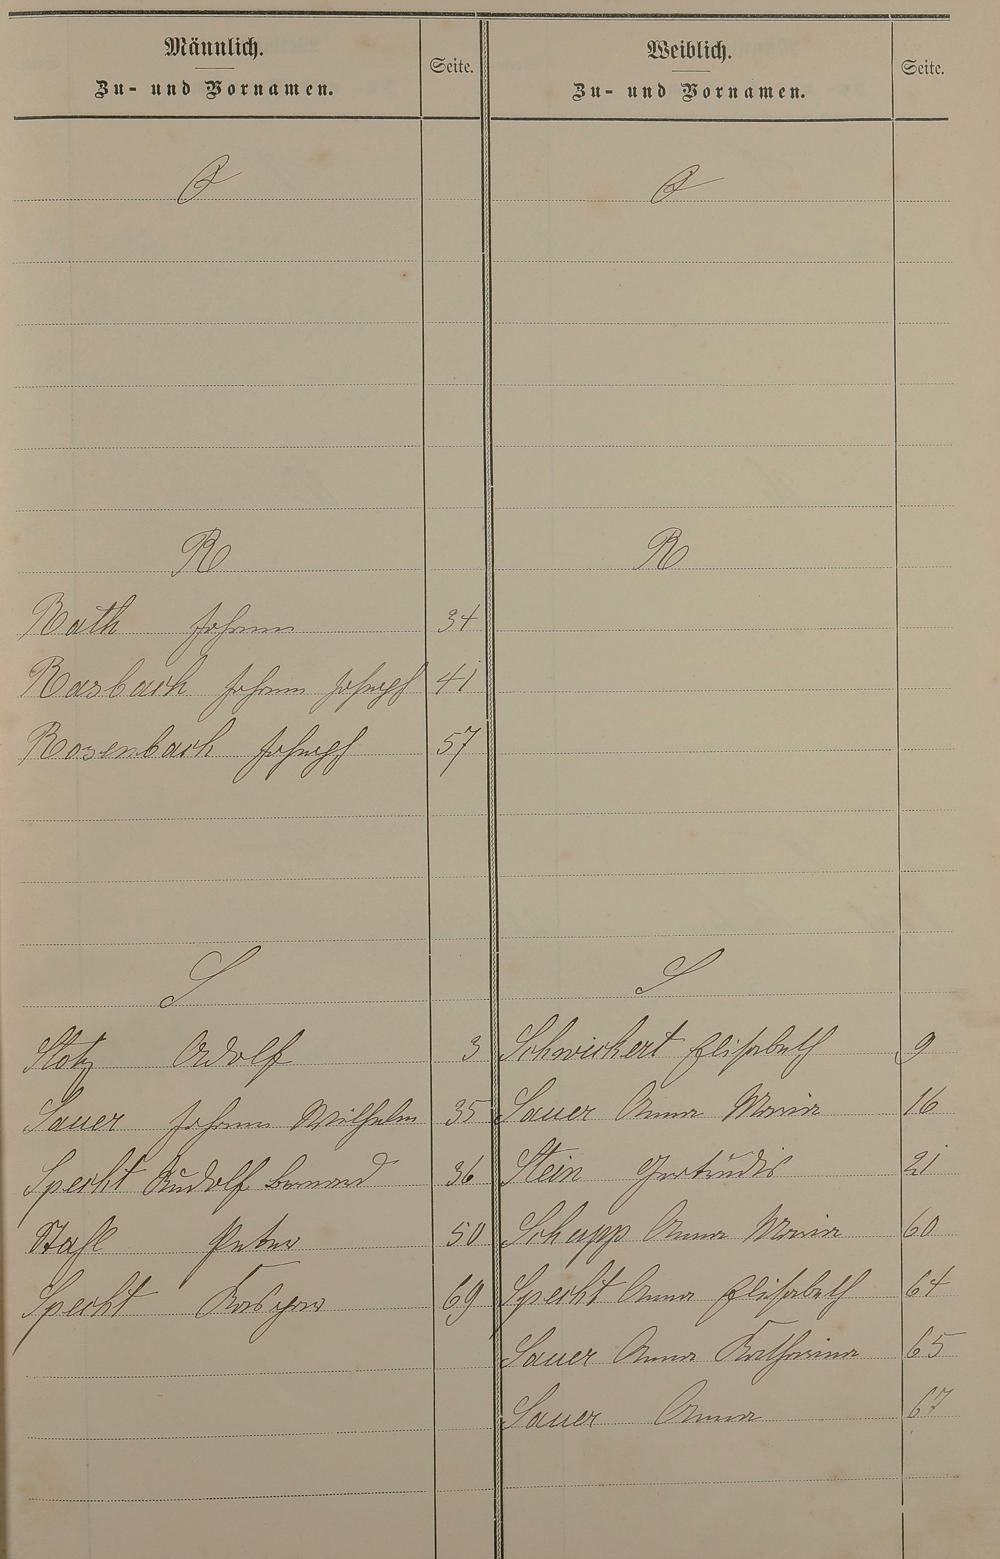 Männlich.
Zu- und Vornamen.
Seite.
Q
R
Rath Johann 34
Rasbach Johann Joseph 41
Rosenbach Joseph 57
S
Stotz Adolf 3
Sauer Johann Wilhelm 35
Specht Rudolf Bernard 36
Stahl Peter 50
Specht Kaspar 69
Weiblich.
Zu- und Vornamen.
Seite.
Q
R
S
Schwickert Elisabeth 9
Sauer Anna Maria 16
Stein Gertrudis 21
Schupp Anna Maria 60
Specht Anna Elisabeth 64
Sauer Anna Katharina 65
Sauer Anna 67